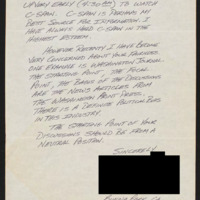 UP VERY EARLY (4:30 AM) TO WATCH
C-SPAN. C-SPAN IS PERHAPS MY
BEST SOURCE FOR INFORMATION. I
HAVE ALWAYS HELD C-SPAN IN THE
HIGHEST ESTEEM.
HOWEVER RECENTLY I HAVE BECOME
VERY CONCERNED ABOUT YOUR PROGRAMS.
ONE EXAMPLE IS WASHINGTON JOURNAL.
THE STARTING POINT, THE FOCAL
POINT, THE BASIS OF THE DISCUSSIONS
ARE THE NEWS ARTICLES FROM
THE WASHINGTON PRINT PRESS.
THERE IS A DEFINITE POLITICAL BIAS
IN THIS INDUSTRY.
THE STARTING POINT OF YOUR
DISCUSSIONS SHOULD BE FROM A
NEUTRAL POSITION.
SINCERELY